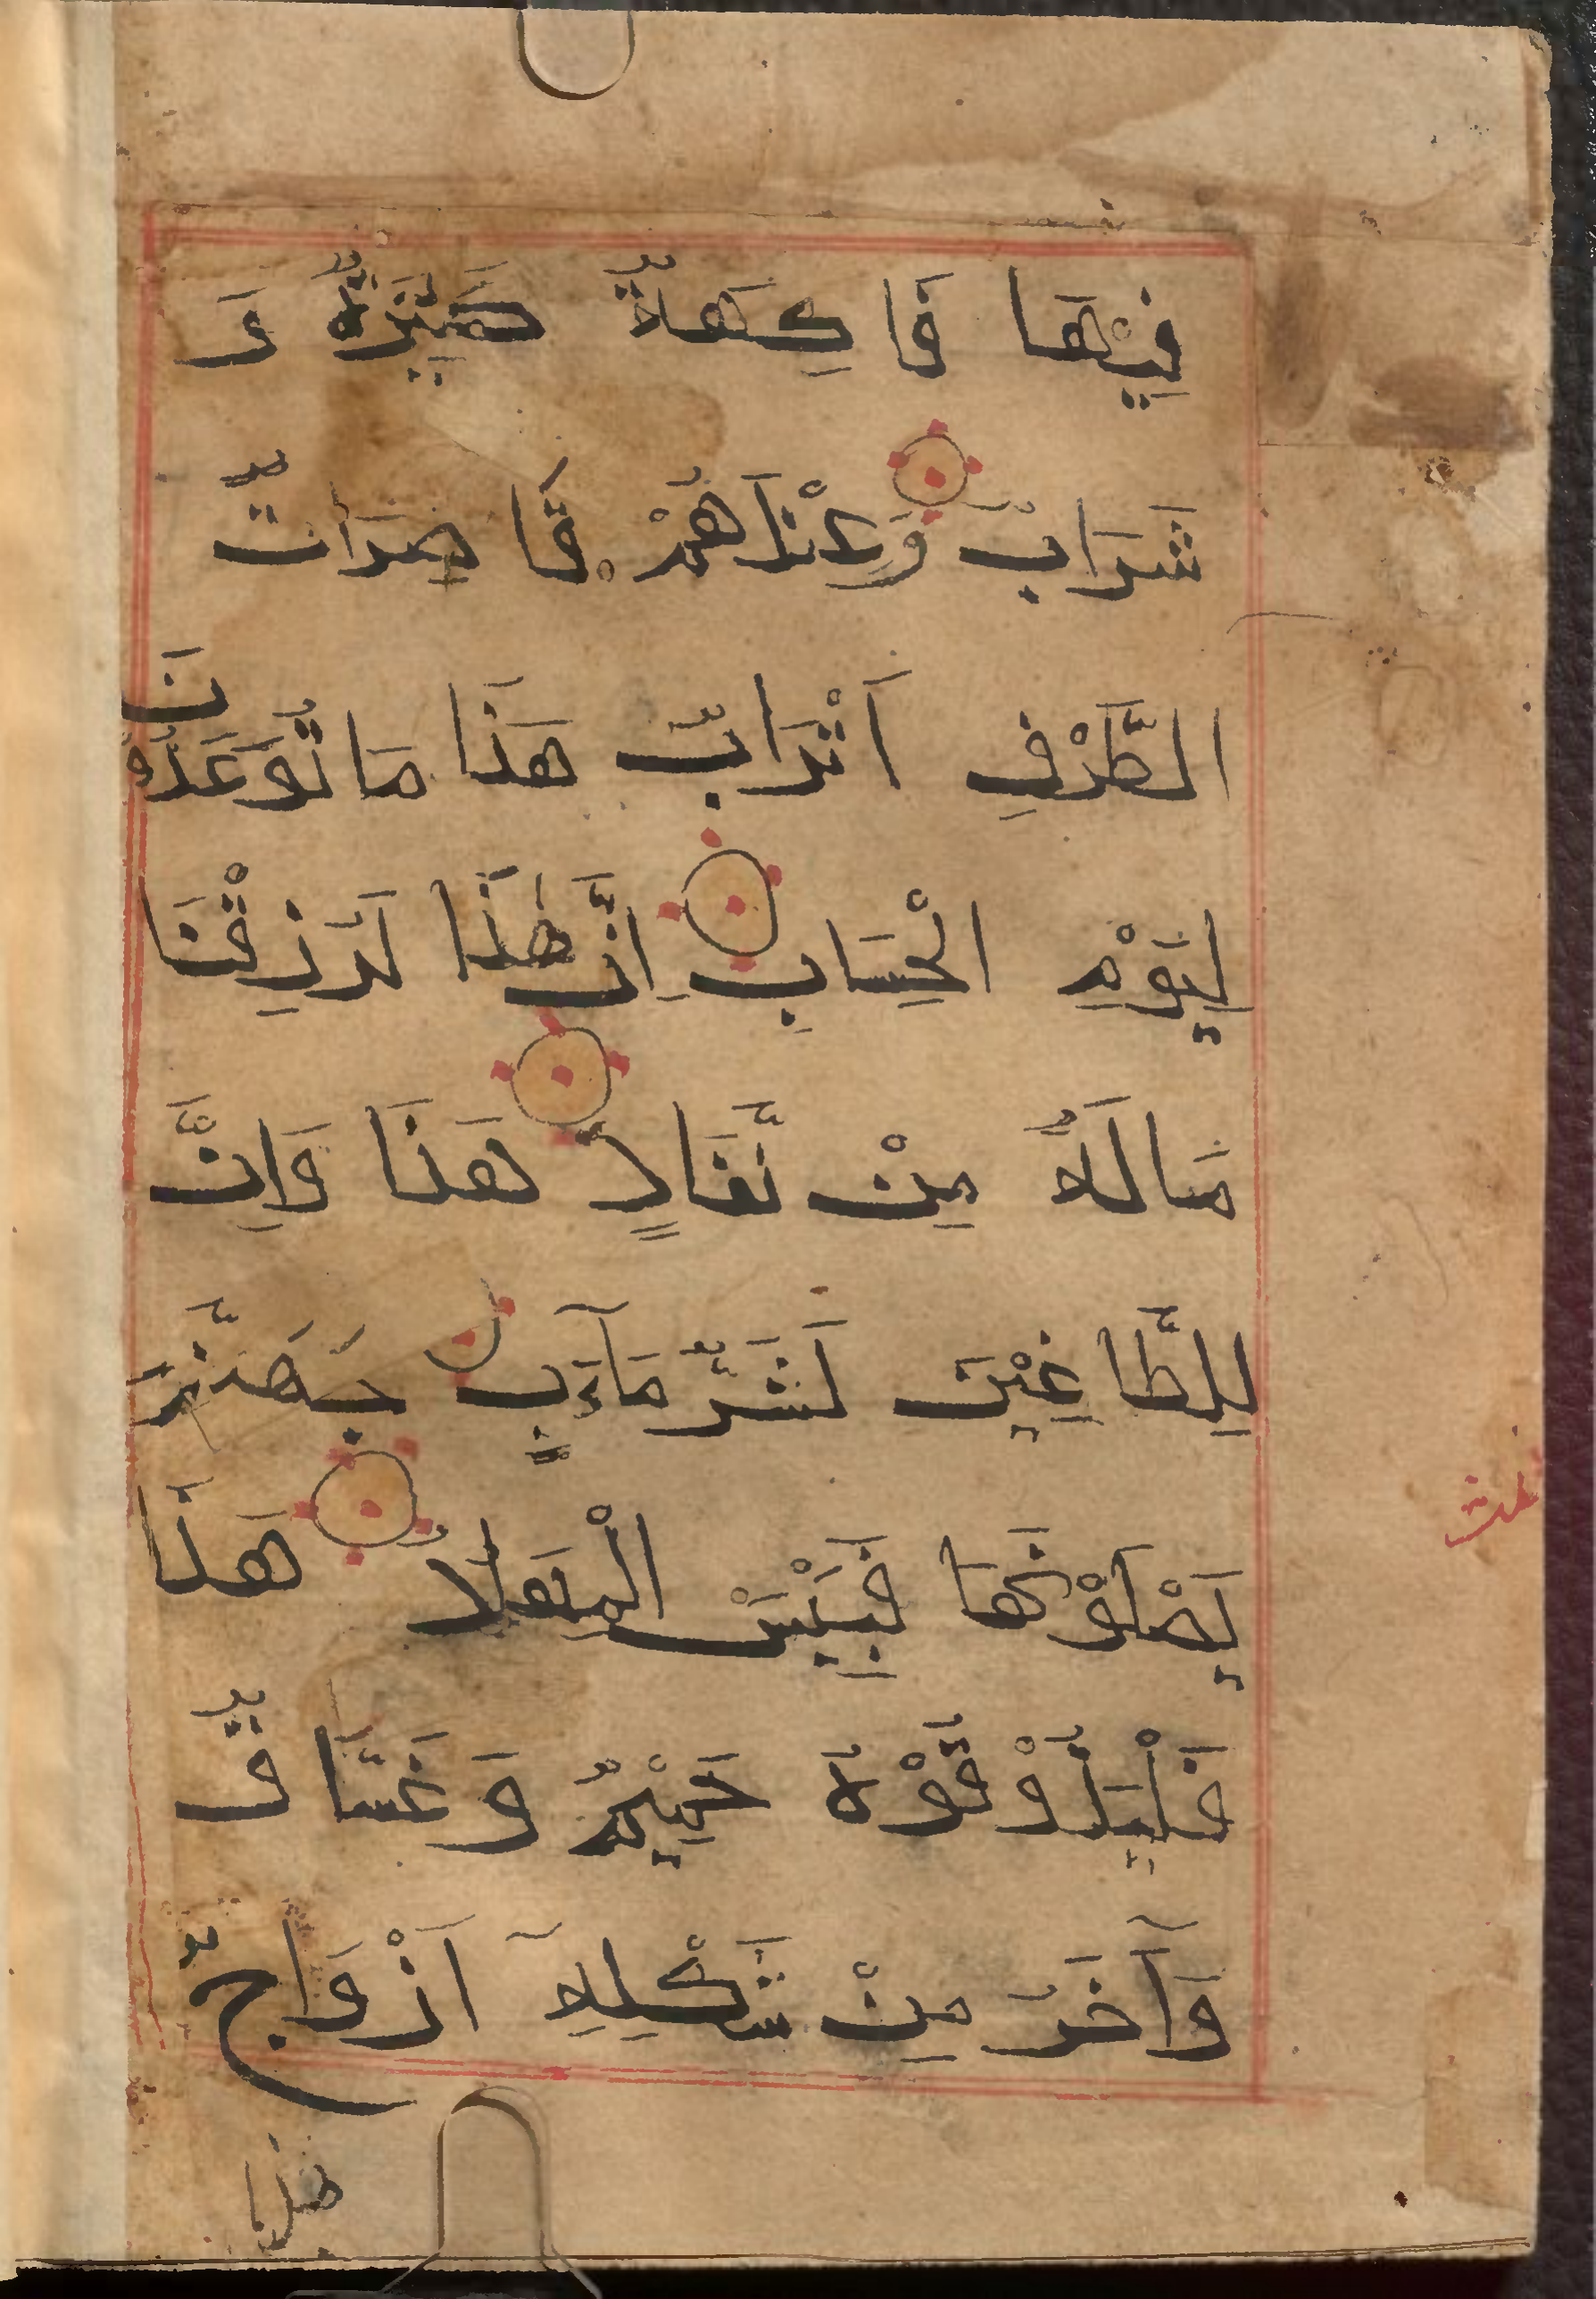 فِيْهَا فَاكِهَةٌ كَثِيْرَةٌ وَ
شَرَابٌ وَعِنْدَهُمْ قَاصِرَاتُ
الطَّرْفِ اَتْرَابٌ هَذَا مَا تُوعَدُونَ
لِيَوْمِ الْحِسَابِ اِنَّ هَذَا لَرِزْقُنَا
مَا لَهُ مِنْ نَّفَادٍ هَذَا وَاِنَّ
لِلطَّاغِيْنَ لَشَرَّ مَآبٍ جَهَنَّمَ
يَصْلَوْنَهَا فَبِئْسَ الْمِهَادُ هَذَا
فَلْيَذُوْقُوْهُ حَمِيْمٌ وَغَسَّاقٌ
وَآخَرُ مِنْ شَكْلِهِ اَزْوَاجٌ
هذا